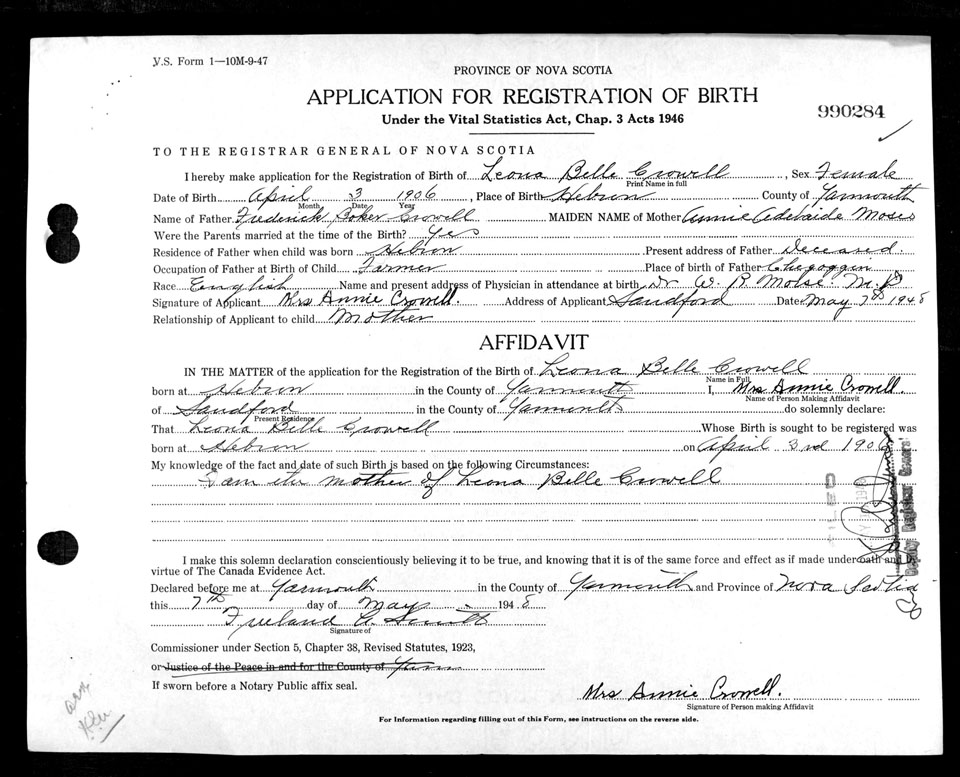 V.S. Form 1—10M-9-47
PROVINCE OF NOVA SCOTIA
APPLICATION FOR REGISTRATION OF BIRTH
990284
Under the Vital Statistics Act, Chap. 3 Acts 1946
TO THE REGISTRAR GENERAL OF NOVA SCOTIA
I hereby make application for the Registration of Birth of Leona Belle Crowell, Sex Female
Print Name in full
Date of Birth April 3 1906, Place of Birth Hebron County of Yarmouth
Month Date Year
Name of Father Frederick Crowell MAIDEN NAME of Mother Annie Adelaide Moses
Were the Parents married at the time of the Birth? Yes
Residence of Father when child was born Hebron Present address of Father Deceased.
Occupation of Father at Birth of Child Farmer Place of birth of Father Chegoggin
Race English Name and present address of Physician in attendance at birth Dr W. R. Morse. M.D
Signature of Applicant Mrs Annie Crowell. Address of Applicant Sandford Date May 7th 1948
Relationship of Applicant to child Mother
AFFIDAVIT
IN THE MATTER of the application for the Registration of the Birth of Leona Belle Crowell
Name in Full
born at Hebron in the County of Yarmouth I, Mrs Annie Crowell.
Name of Person Making Affidavit
of Sandford in the County of Yarmouth do solemnly declare:
Present Residence
That Leona Belle Crowell Whose Birth is sought to be registered was
born at Hebron on April 3rd 1906
My knowledge of the fact and date of such Birth is based on the following Circumstances:
I am the mother of Leona Belle Crowell
FILED
Deputy Registrar General
I make this solemn declaration conscientiously believing it to be true, and knowing that it is of the same force and effect as if made under oath and by
virtue of The Canada Evidence Act.
Declared before me at Yarmouth in the County of Yarmouth and Province of Nova Scotia
this 7th day of May 1948
Signature of
Commissioner under Section 5, Chapter 38, Revised Statutes, 1923,
or Justice of the Peace in and for the County of Yarm
If sworn before a Notary Public affix seal.
Mrs Annie Crowell.
Signature of Person making Affidavit
For Information regarding filling out of this Form, see instructions on the reverse side.